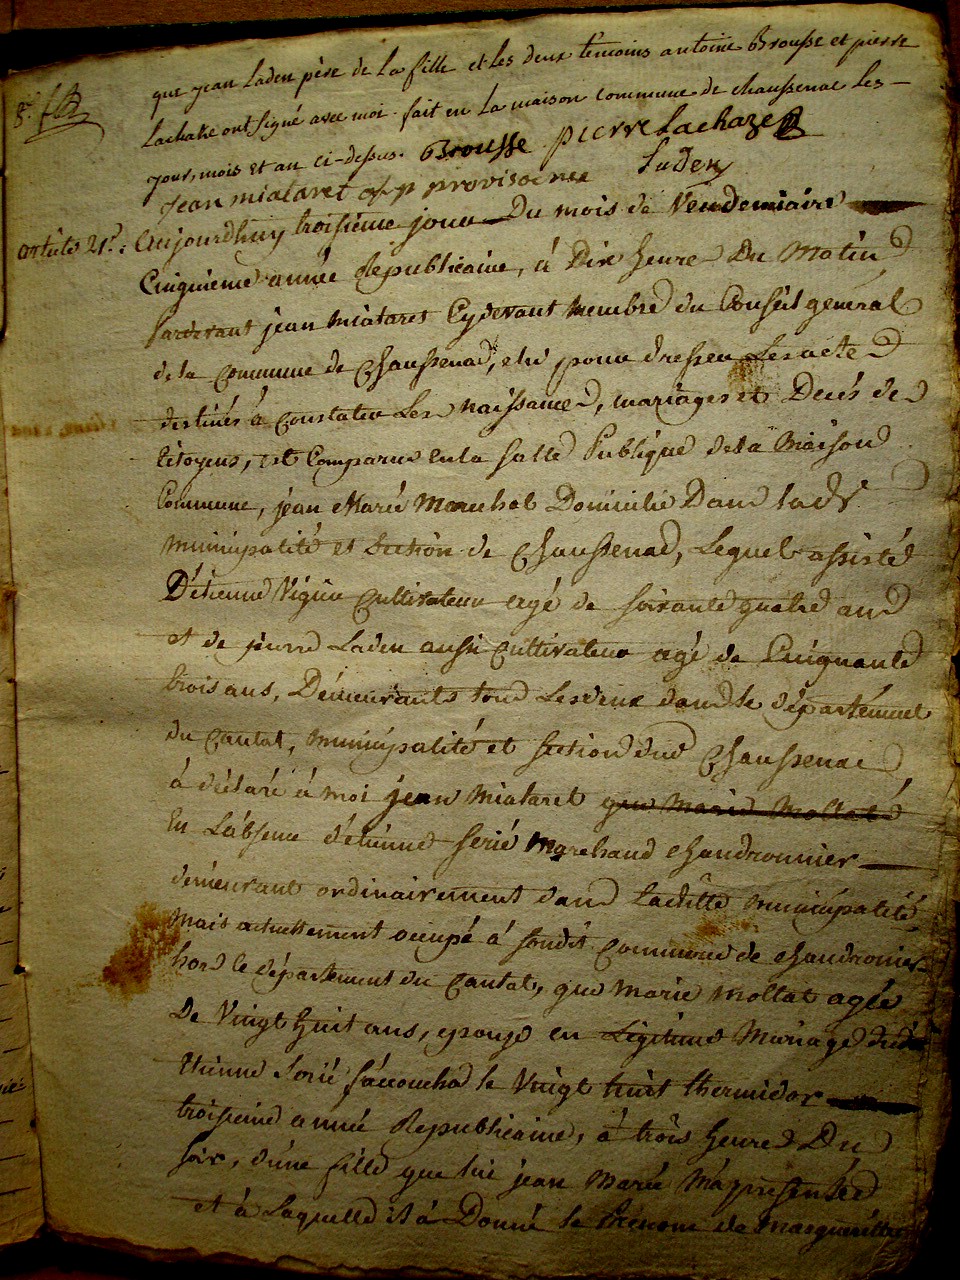 que jean Laden père de La fille et les deux témoins antoine Brousse et pierre
Lachaze ont signé avec moi. fait en La maison commune de chaussenac les
jour, mois et an ci-dessus. Brousse pierre Lachaze
jean mialaret provisoire Laden
article 21e: Aujourdhuy troisieme jour Du mois de Vendemiaire
Cinquieme année Republicaine, à Dix heures Du Matin
Pardevant jean Mialaret Cydevant Membre du Conseil general
de la Commune de Chaussenac, elu pour dresser Les actes
destinés à Constater Les Naissances, mariages et Decés des
Citoyens, est Comparu en la Salle Publique de la Maison
Commune, jean Marechal Domicilié Dans ladt
municipalité et Section de Chaussenac, Lequel assisté
D'étienne Vigier Cultivateur agé de soixante quatre ans
et de pierre Laden aussi Cultivateur agé de Cinquante
trois ans, Demeurants tous Les deux dans le département
du Cantal, Municipalité et Section dud Chaussenac,
à déclaré à moi jean Mialaret que Marie Mollat
En L'absence d'étienne Serié Marchand chaudronnier
demeurant ordinairement dans Laditte municipalité
Mais actuellement occupé à sondit commerce de chaudronier
hors le département du Cantal, que Marie Mollat agée
De Vingt huit ans, epouse en Légitime Mariage dud
Etienne Serié s'accoucha le Vingt huit thermidor
troisieme année Republicaine, à trois heures Du
Soir, d'une fille que lui jean M'a présentée
et à Laquelle il à Donné le Prénom de Margueritte